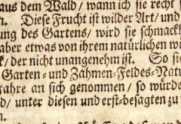 aus dem Wald/ wann ich sie recht
n. Diese Frucht ist wilder Art/ und
ung des Gartens/ wird sie schmack
aber etwas von ihrem natürlichen wi
k/ der nicht unangenehm ist. So si
Garten- und Zahmen-Feldes-Nat
jahre an sich genommen/ so würde
d/ unter diesen und erst-besagten zu